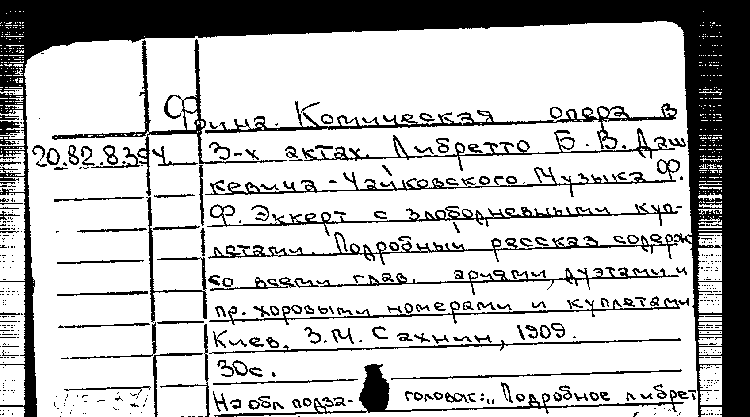 Фрина. Комическая опера в
20.82.839 3-х актах. Либретто Б. В. Даш
кевича-Чайковского Музыка Ф.
Ф. Эккерт с злободневными куп-
летами. Подробный рассказ содерж
со всеми глав. ариями, дуэтами и
пр. хоровыми номерами и куплетами
Киев, З.М. Сахнин, 1909.
30с.
На обл подза- головок: „Подробное либрет